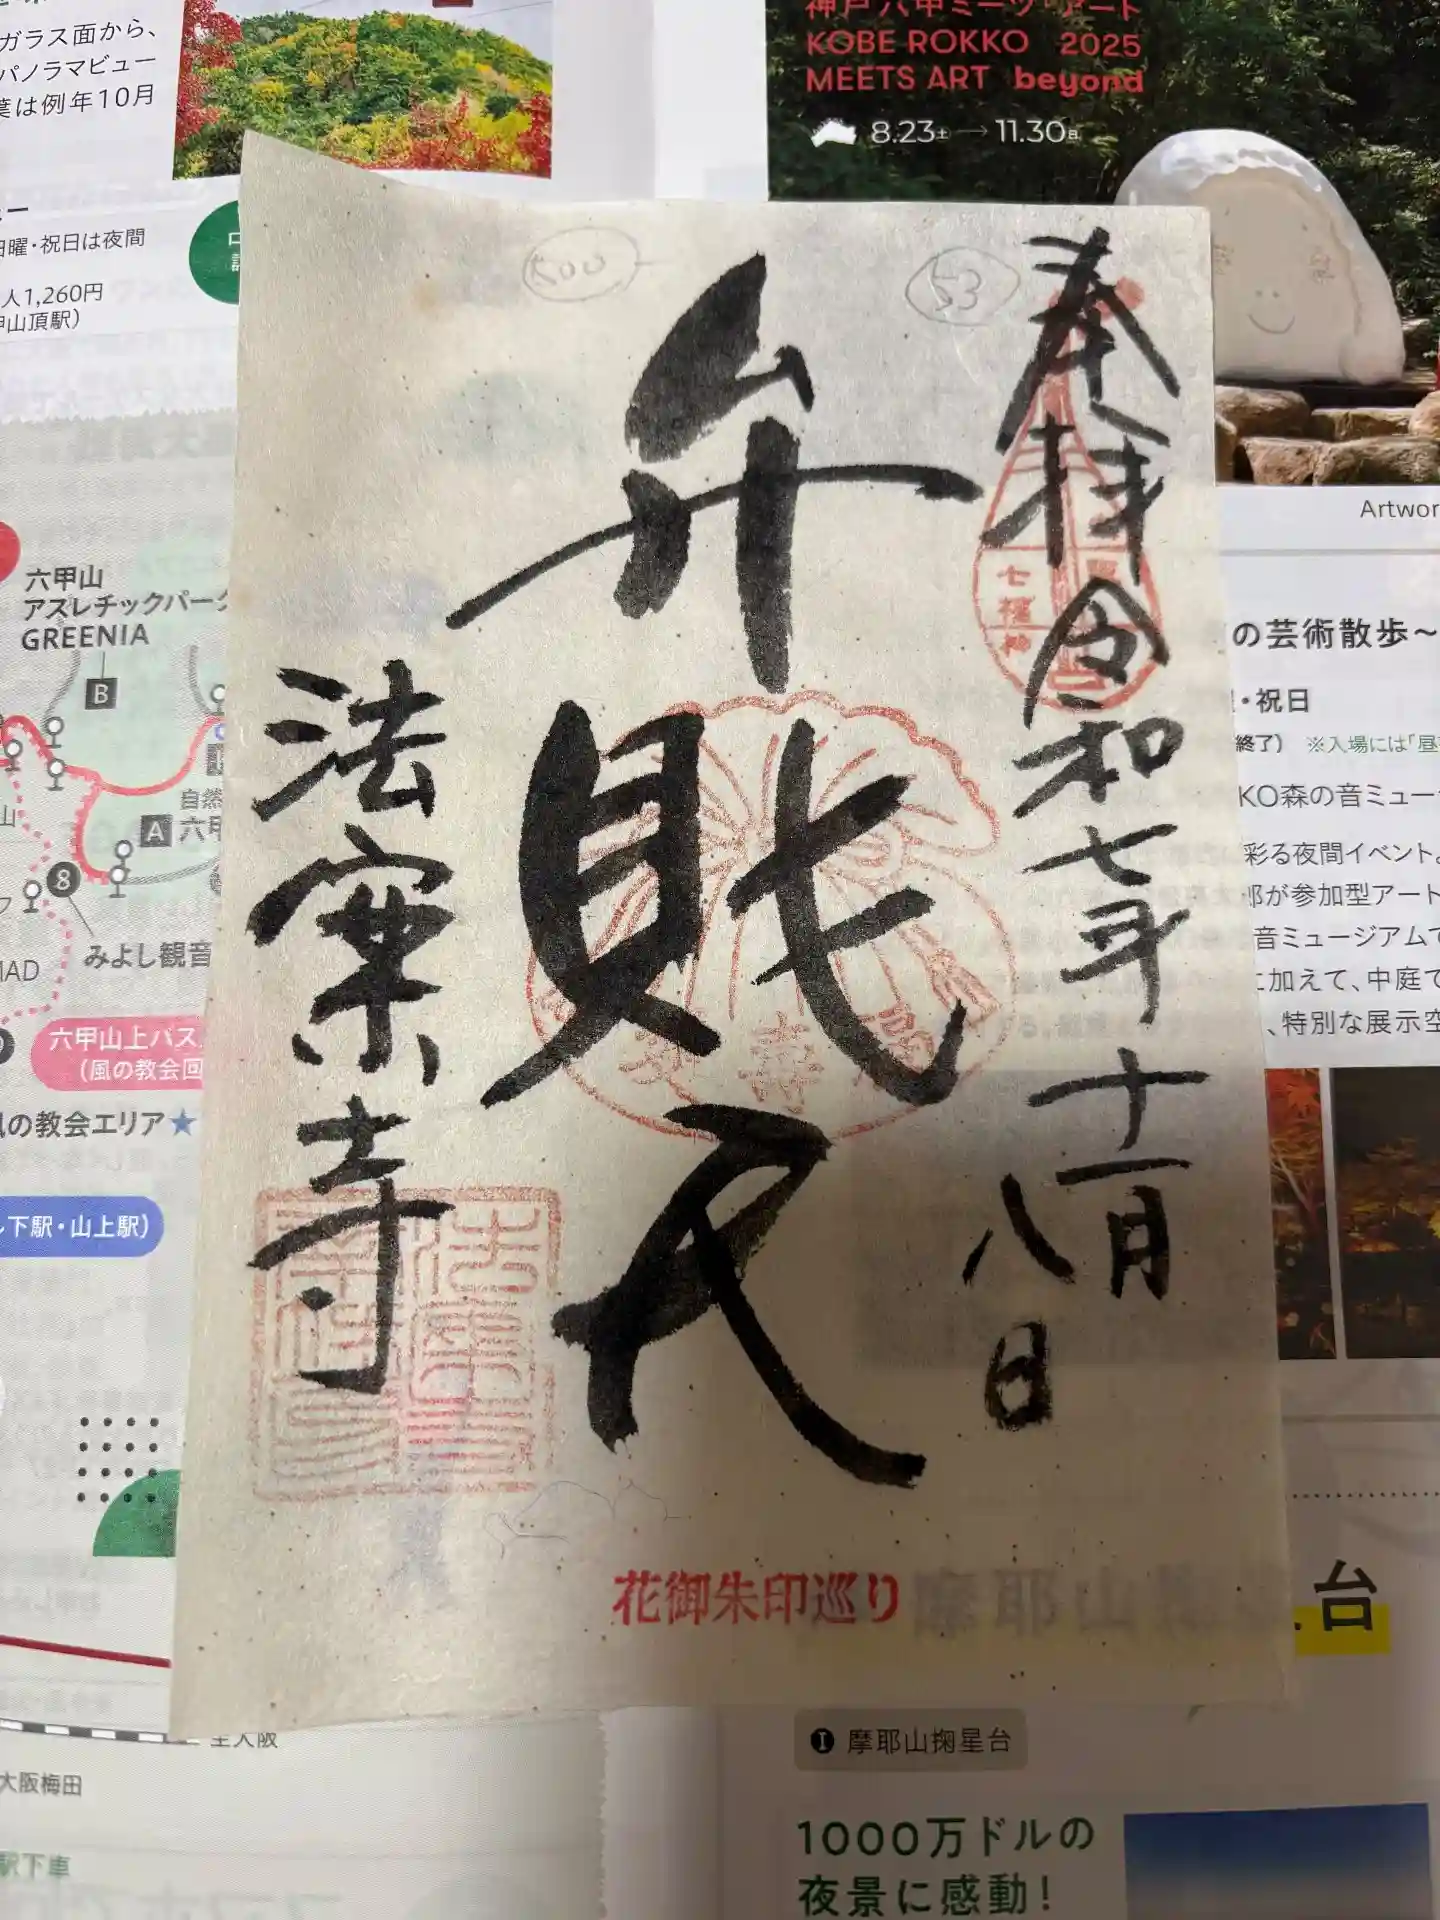 ガラス面から、
パノラマビュー
葉は例年10月
日曜・祝日は夜間
人1,260円
甲山頂駅）
神戸六甲ミーツ・アート
KOBE ROKKO 2025
MEETS ART beyond
8.23土→11.30日
奉拝
令和七年十一月八日
弁財天
法案寺
500
53
七福神
花御朱印巡り
六甲山
アスレチックパーク
GREENIA
B
自然
A 六甲
8
みよし観音
六甲山上バス
（風の教会回
風の教会エリア★
ル下駅・山上駅）
大阪梅田
駅下車
Artwor
の芸術散歩～
・祝日
終了） ※入場には「昼
KO森の音ミュー
彩る夜間イベント。
郎が参加型アート
音ミュージアムで
に加えて、中庭で
、特別な展示空
台
I 摩耶山掬星台
1000万ドルの
夜景に感動！